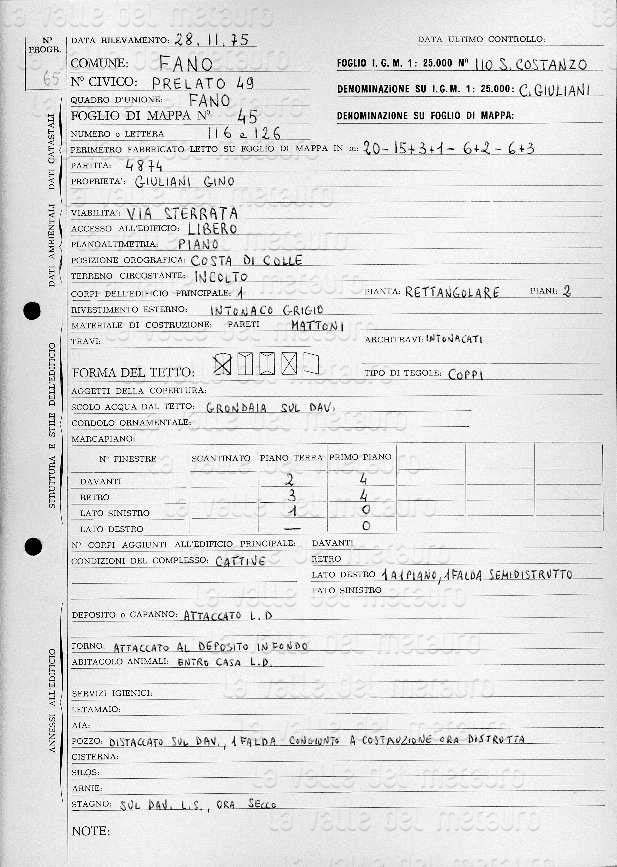 Nº PROGR. 65
DATA RILEVAMENTO: 28.11.75 DATA ULTIMO CONTROLLO:
COMUNE: FANO FOGLIO I.G.M. 1: 25.000 Nº 110 S. COSTANZO
Nº CIVICO: PRELATO 49 DENOMINAZIONE SU I.G.M. 1: 25.000: C. GIULIANI
QUADRO D'UNIONE: FANO
FOGLIO DI MAPPA Nº 45 DENOMINAZIONE SU FOGLIO DI MAPPA:
NUMERO o LETTERA 116 e 126
PERIMETRO FABBRICATO LETTO SU FOGLIO DI MAPPA IN m: 20-15+3+1-6+2-6+3
PARTITA: 4874
PROPRIETA': GIULIANI GINO
DATI CATASTALI
VIABILITA': VIA STERRATA
ACCESSO ALL'EDIFICIO: LIBERO
PLANOALTIMETRIA: PIANO
POSIZIONE OROGRAFICA: COSTA DI COLLE
TERRENO CIRCOSTANTE: INCOLTO
DATI AMBIENTALI
CORPI DELL'EDIFICIO PRINCIPALE: 1 PIANTA: RETTANGOLARE PIANI: 2
RIVESTIMENTO ESTERNO: INTONACO GRIGIO
MATERIALE DI COSTRUZIONE: PARETI MATTONI
TRAVI: ARCHITRAVI: INTONACATI
FORMA DEL TETTO: TIPO DI TEGOLE: COPPI
AGGETTI DELLA COPERTURA:
SCOLO ACQUA DAL TETTO: GRONDAIA SUL DAV.
CORDOLO ORNAMENTALE:
MARCAPIANO:
Nº FINESTRE SCANTINATO PIANO TERRA PRIMO PIANO
DAVANTI 2 4
RETRO 3 4
LATO SINISTRO 1 0
LATO DESTRO — 0
STRUTTURA E STILE DELL'EDIFICIO
Nº CORPI AGGIUNTI ALL'EDIFICIO PRINCIPALE: DAVANTI
CONDIZIONI DEL COMPLESSO: CATTIVE RETRO
LATO DESTRO 1 A 1 PIANO, 1 FALDA SEMIDISTRUTTO
LATO SINISTRO
DEPOSITO o CAPANNO: ATTACCATO L.D
FORNO: ATTACCATO AL DEPOSITO IN FONDO
ABITACOLO ANIMALI: ENTRO CASA L.D.
SERVIZI IGIENICI:
LETAMAIO:
AIA:
POZZO: DISTACCATO SUL DAV., 1 FALDA CONGIUNTO A COSTRUZIONE ORA DISTRUTTA
CISTERNA:
SILOS:
ARNIE:
STAGNO: SUL DAV. L.S., ORA SECCO
ANNESSI ALL'EDIFICIO
NOTE:
la valle del metauro